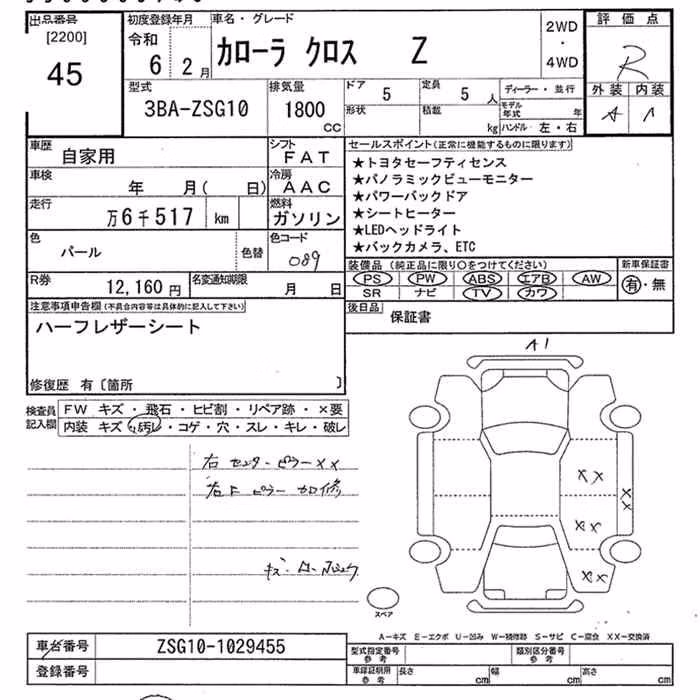 出品番号
[2200]
45
初度登録年月
令和
6 2月
車名・グレード
カローラ クロス Z
2WD
・
4WD
評価点
R
外装 内装
A A
型式
3BA-ZSG10
排気量
1800
CC
ドア 5
定員 5 人
形状
積載 kg
ディーラー・並行
モデル年式 年
ハンドル 左・右
車歴 自家用
シフト FAT
車検 年 月( 日)
冷房 AAC
走行 万6千517 km
燃料 ガソリン
色 パール
色替
色コード 089
R券 12,160円
名変通知期限 月 日
セールスポイント(正常に機能するものに限ります)
★トヨタセーフティセンス
★パノラミックビューモニター
★パワーバックドア
★シートヒーター
★LEDヘッドライト
★バックカメラ、ETC
装備品 (純正品に限り○をつけてください)
新車保証書
PS PW ABS エアB AW
SR ナビ TV カワ
有・無
後日品 保証書
注意事項申告欄(不具合内容等は具体的に記入して下さい)
ハーフレザーシート
修復歴 有〔箇所 〕
検査員記入欄
FW キズ・飛石・ヒビ割・リペア跡・×要
内装 キズ・汚レ・コゲ・穴・スレ・キレ・破レ
右センターピラーXX
右Fピラー加修
A1
XX
XX
XX
XX
スペア
A-キズ E-エクボ U-凹み W-補修跡 S-サビ C-腐食 XX-交換済
車台番号 ZSG10-1029455
登録番号
型式指定番号
参考
類別区分番号
参考
車庫証明用
参考
長さ cm
幅 cm
高さ cm